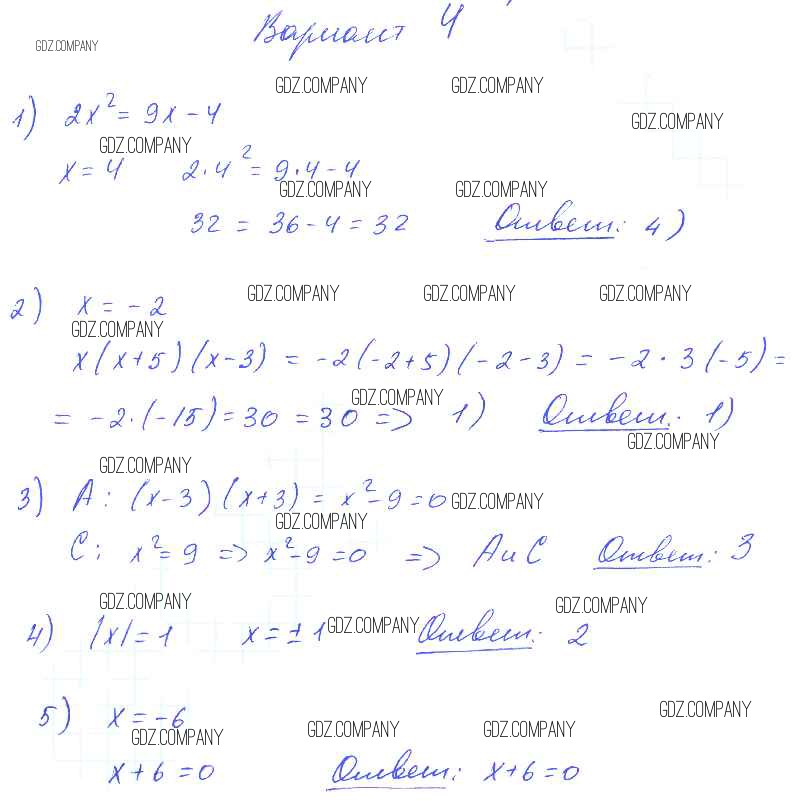 Вариант 4
GDZ.COMPANY
GDZ.COMPANY GDZ.COMPANY
GDZ.COMPANY
1) 2x² = 9x - 4
GDZ.COMPANY
x = 4 2·4² = 9·4 - 4
GDZ.COMPANY GDZ.COMPANY
32 = 36 - 4 = 32 Ответ: 4)
GDZ.COMPANY GDZ.COMPANY GDZ.COMPANY
2) x = -2
GDZ.COMPANY
x(x+5)(x-3) = -2(-2+5)(-2-3) = -2·3(-5) =
GDZ.COMPANY
= -2·(-15) = 30 = 30 => 1) Ответ: 1)
GDZ.COMPANY
GDZ.COMPANY
3) A: (x-3)(x+3) = x²-9 = 0 GDZ.COMPANY
GDZ.COMPANY
C: x² = 9 => x²-9 = 0 => A и C Ответ: 3
GDZ.COMPANY GDZ.COMPANY
4) |x| = 1 x = ±1 GDZ.COMPANY Ответ: 2
5) x = -6 GDZ.COMPANY
GDZ.COMPANY GDZ.COMPANY GDZ.COMPANY
x+6 = 0 Ответ: x+6 = 0